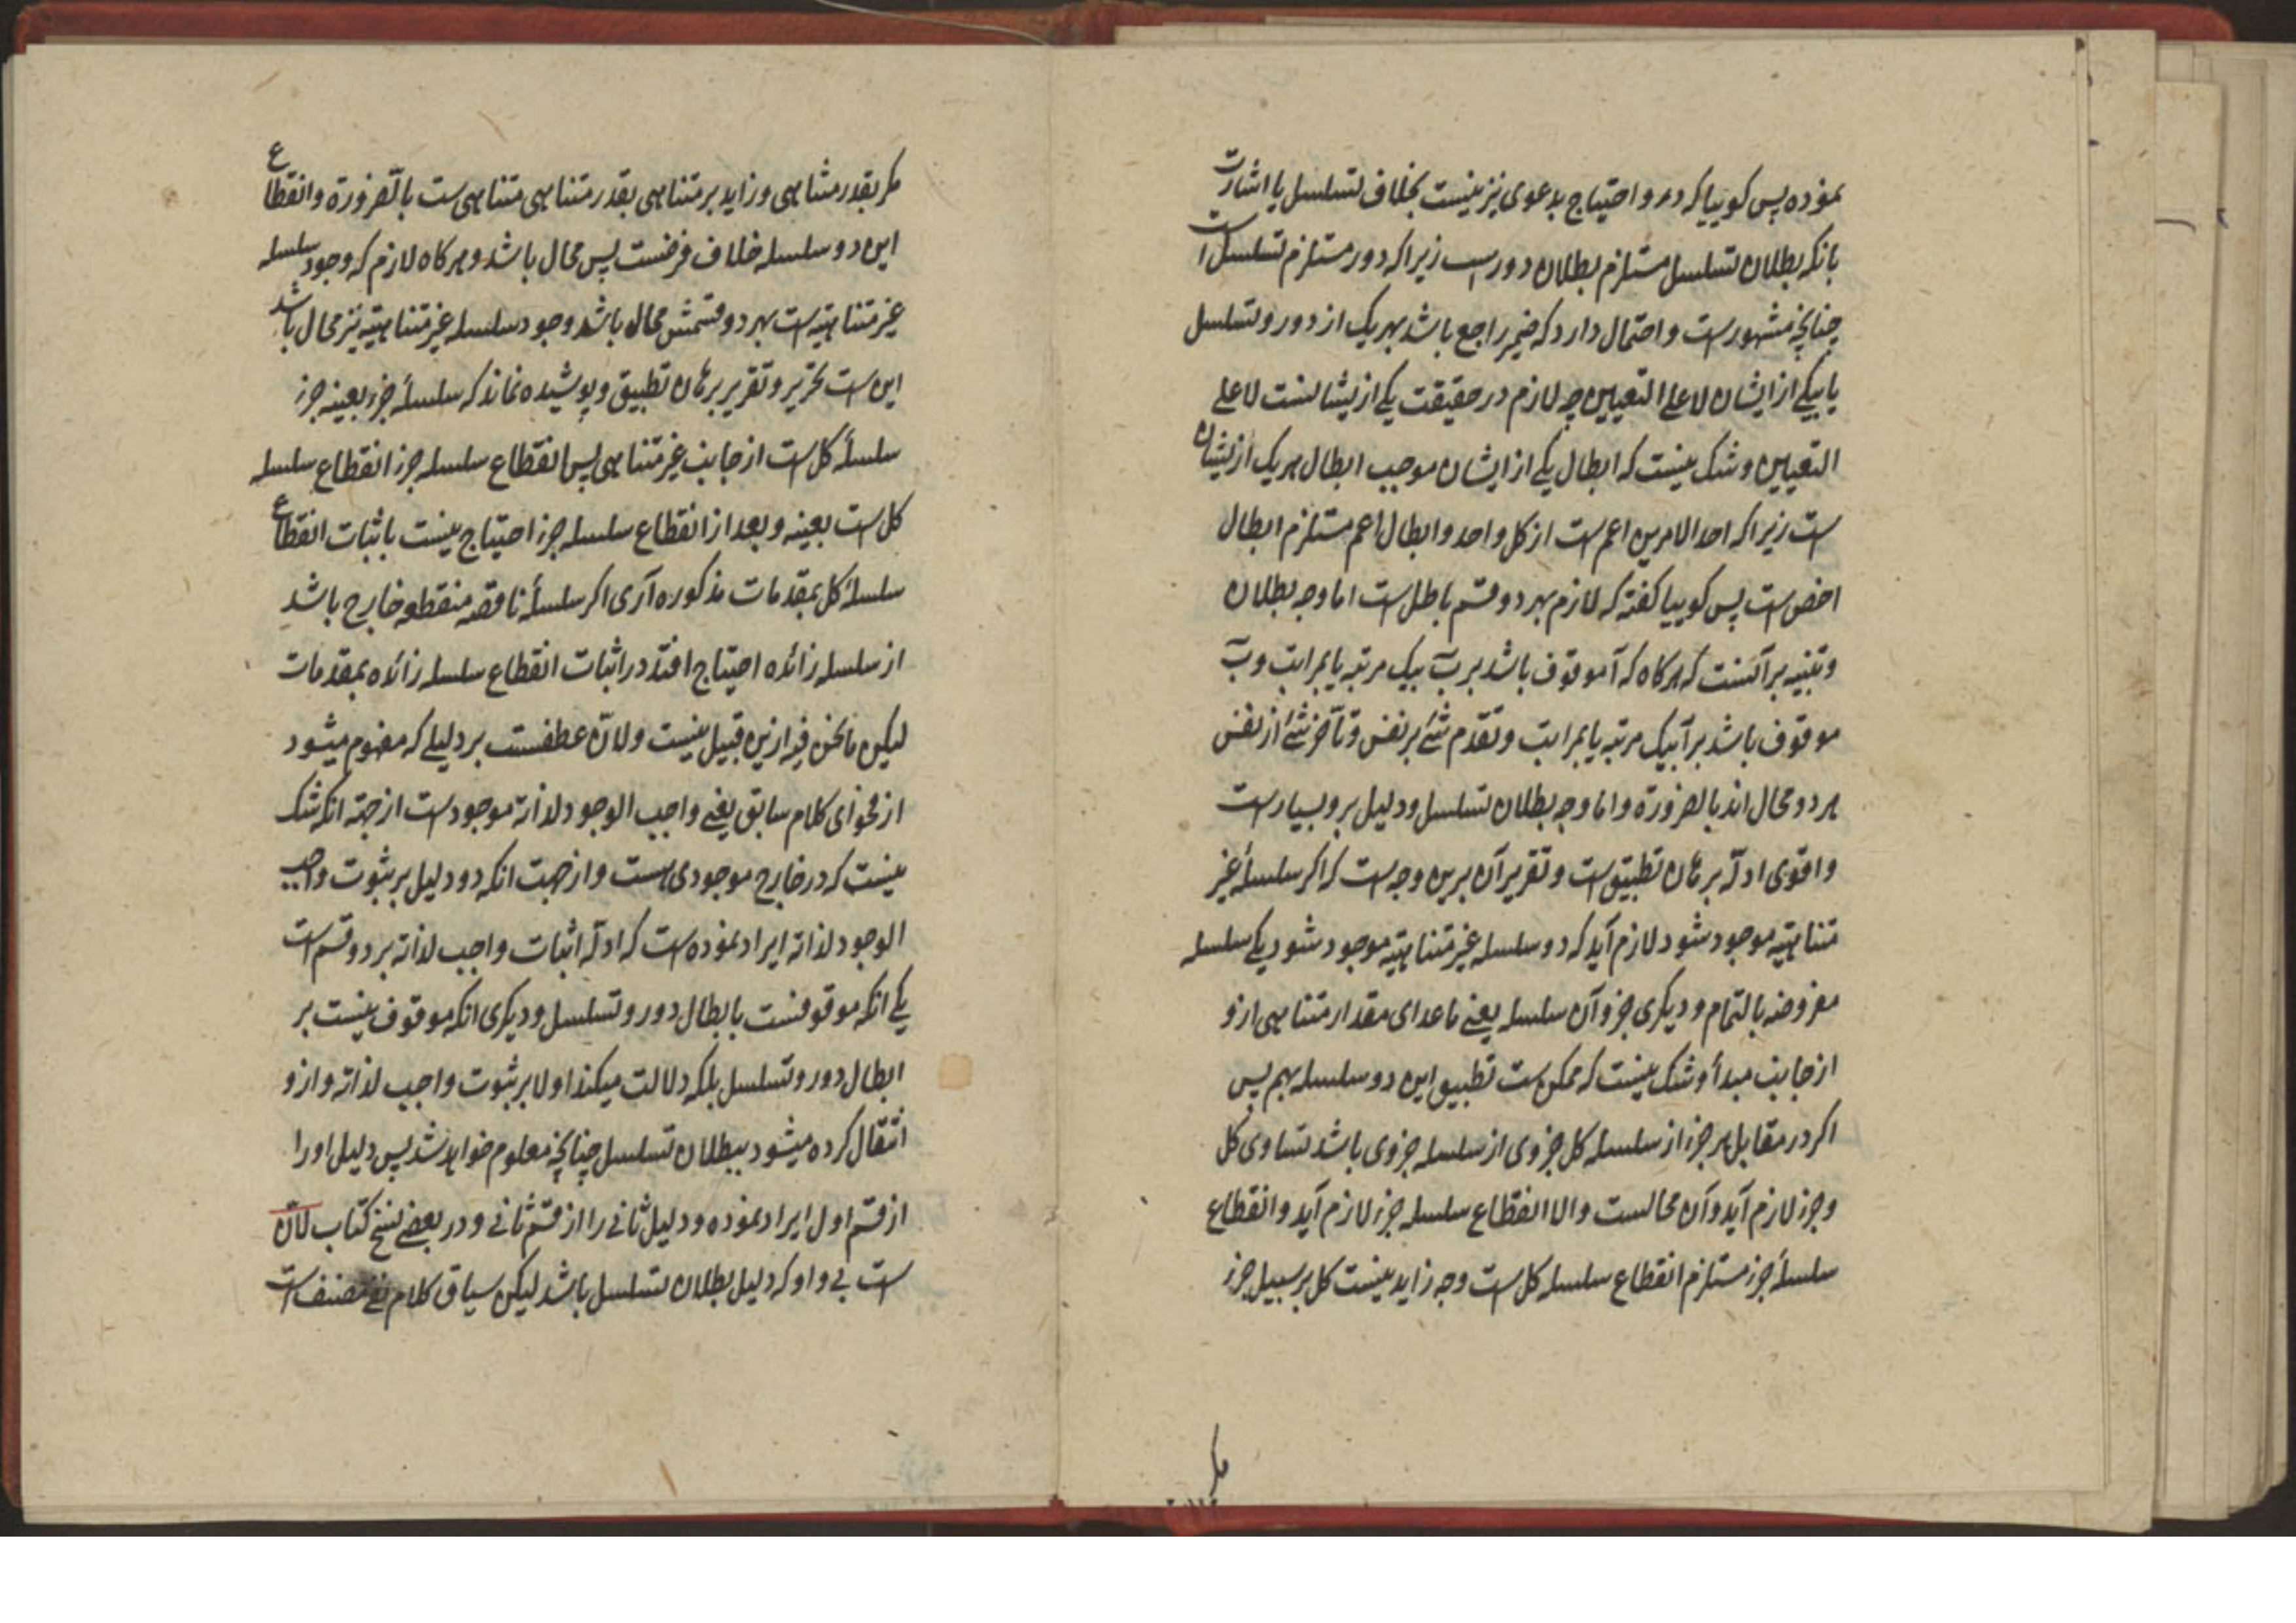 نموده پس کوییا که دور و احتیاج بدعوی نیز نیست بخلاف تسلسل یا اشارت
بانکه بطلان تسلسل مستلزم بطلان دور است زیرا که دور مستلزم تسلسل است
چنانچه مشهور است و احتمال دارد که ضمیر راجع باشد بهریک از دور و تسلسل
یا بیکی از ایشان لا علی التعیین چه لازم در حقیقت یکی از یشانست لا علی
التعیین و شک نیست که ابطال یکی از ایشان موجب ابطال هریک از یشان
است زیرا که احد الامرین اعم است از کل واحد و ابطال اعم مستلزم ابطال
اخص است پس کوییا کفته که لازم بهر دو قسم باطل است اما وجه بطلان
و تنبیه بر آنست که هرکاه که آ موقوف باشد بر ب بیک مرتبه یا بمراتب و ب
موقوف باشد بر آ بیک مرتبه یا بمراتب و تقدم شئ بر نفس و تأخر شئ از نفس
هر دو محال اند بالضرورة و اما وجه بطلان تسلسل و دلیل برو بسیار است
و اقوی ادلّه برهان تطبیق است و تقریر آن برین وجه است که اکر سلسلهٔ غیر
متناهیه موجود شود لازم آید که دو سلسله غیر متناهیه موجود شود یکی سلسله
مفروضه بالتمام و دیکری جزو آن سلسله یعنی ماعدای مقدار متناهی ازو
از جانب مبدأ و شک نیست که ممکن است تطبیق این دو سلسله بهم پس
اکر در مقابل هر جزء از سلسله کل جزوی از سلسله جزوی باشد تساوی کل
و جزء لازم آید و آن محالست و الا انقطاع سلسله جزء لازم آید و انقطاع
سلسلهٔ جزء مستلزم انقطاع سلسله کل است وجه زاید نیست کل بر سبیل جزء
مکر
مکر بقدر متناهی و زاید بر متناهی بقدر متناهی متناهی است بالضرورة و انقطاع
این دو سلسله خلاف فرضست پس محال باشد و هرکاه لازم که وجود سلسله
غیر متناهیه است بهر دو قسمش محال باشد وجود سلسله غیر متناهیه نیز محال باشد
این است تحریر و تقریر برهان تطبیق و پوشیده نماند که سلسلهٔ جزء بعینه جزء
سلسلهٔ کل است از جانب غیر متناهی پس انقطاع سلسله جزء انقطاع سلسله
کل است بعینه و بعد از انقطاع سلسله جزء احتیاج نیست باثبات انقطاع
سلسلهٔ کل بمقدمات مذکوره آری اکر سلسلهٔ ناقصه منقطعه خارج باشد
از سلسله زائده احتیاج افتد در اثبات انقطاع سلسله زائده بمقدمات
لیکن ما نحن فیه ازین قبیل نیست و لانّ عطفست بر دلیلی که مفهوم میشود
از فحوای کلام سابق یعنی واجب الوجود لذاته موجود است از جهة انکه شک
نیست که در خارج موجودی هست و از جهت انکه دو دلیل بر ثبوت واجب
الوجود لذاته ایراد نموده است که ادلّه اثبات واجب لذاته بر دو قسم است
یکی انکه موقوفست بابطال دور و تسلسل و دیکری انکه موقوف نیست بر
ابطال دور و تسلسل بلکه دلالت میکند اولا بر ثبوت واجب لذاته و ازو
انتقال کرده میشود ببطلان تسلسل چنانچه معلوم خواهد شد پس دلیل او را
از قسم اول ایراد نموده و دلیل ثانی را از قسم ثانی و در بعضی نسخ کتاب لانّ
است بی واو که دلیل بطلان تسلسل باشد لیکن سیاق کلام مصنف است